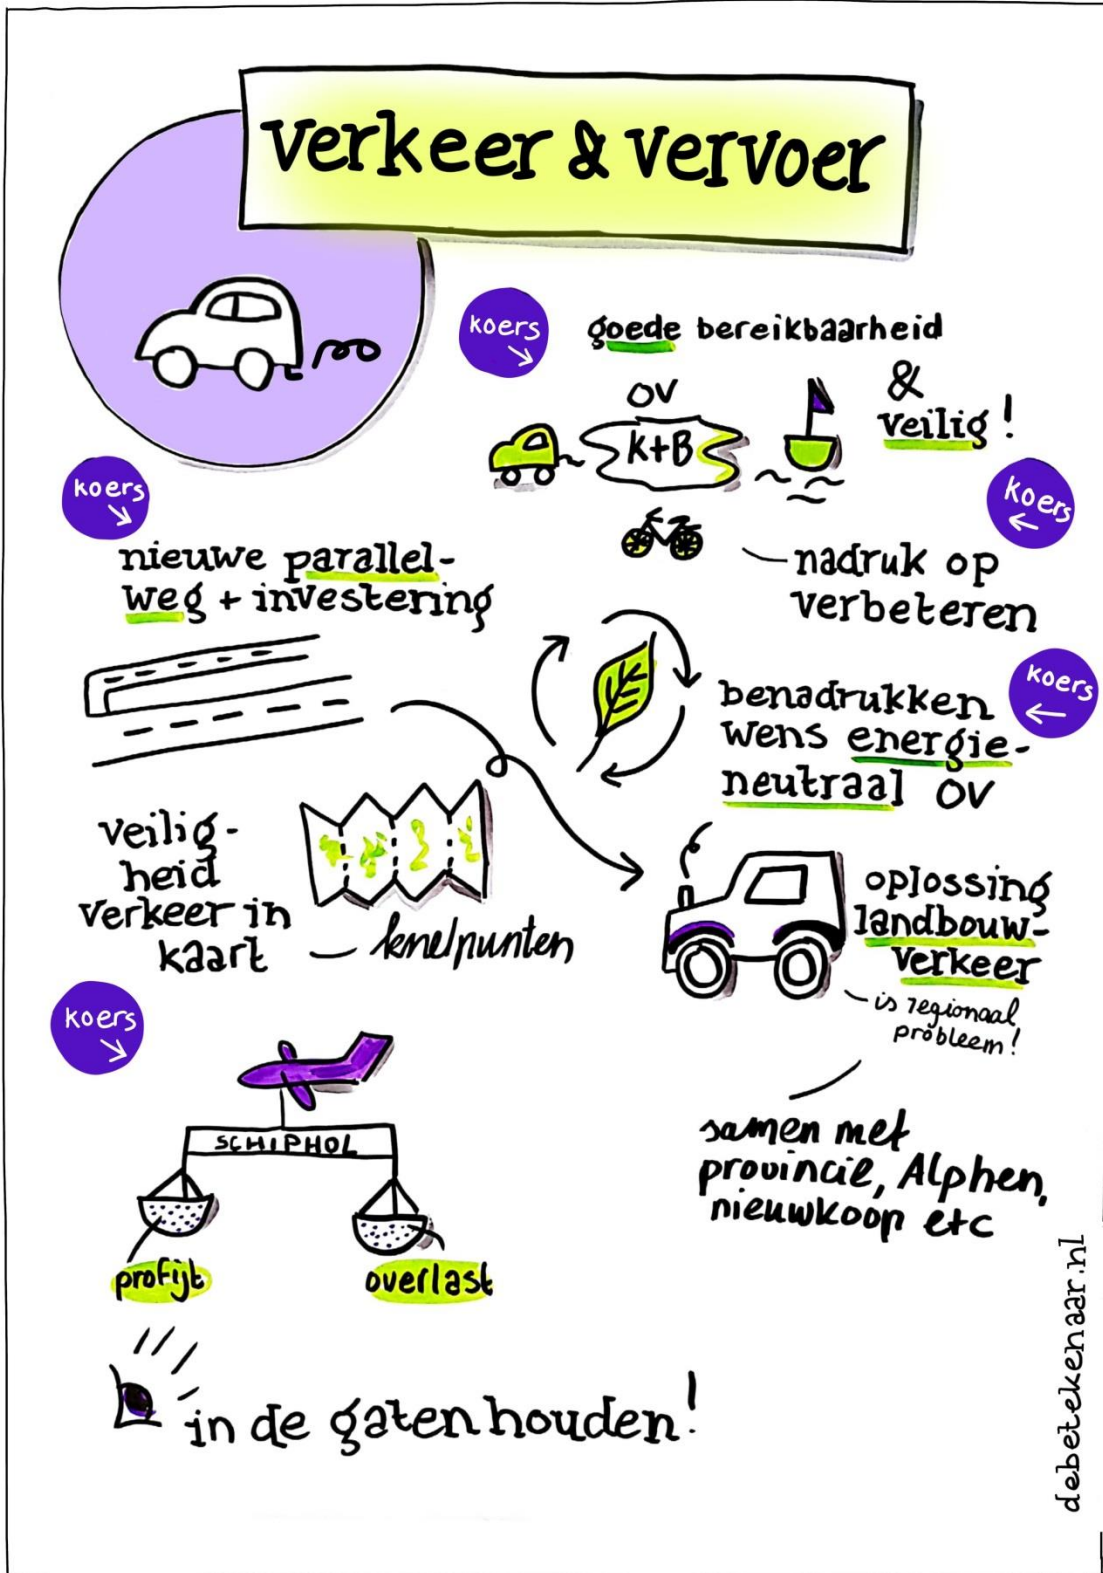 verkeer & vervoer
koers
goede bereikbaarheid
&
veilig!
OV
K+B
koers
nadruk op
verbeteren
koers
nieuwe parallel-
weg + investering
koers
benadrukken
wens energie-
neutraal OV
veilig-
heid
verkeer in
kaart
knelpunten
oplossing
landbouw-
verkeer
is regionaal
probleem!
samen met
provincie, Alphen,
nieuwkoop etc
koers
SCHIPHOL
profijt
overlast
in de gaten houden!
debetekenaar.nl